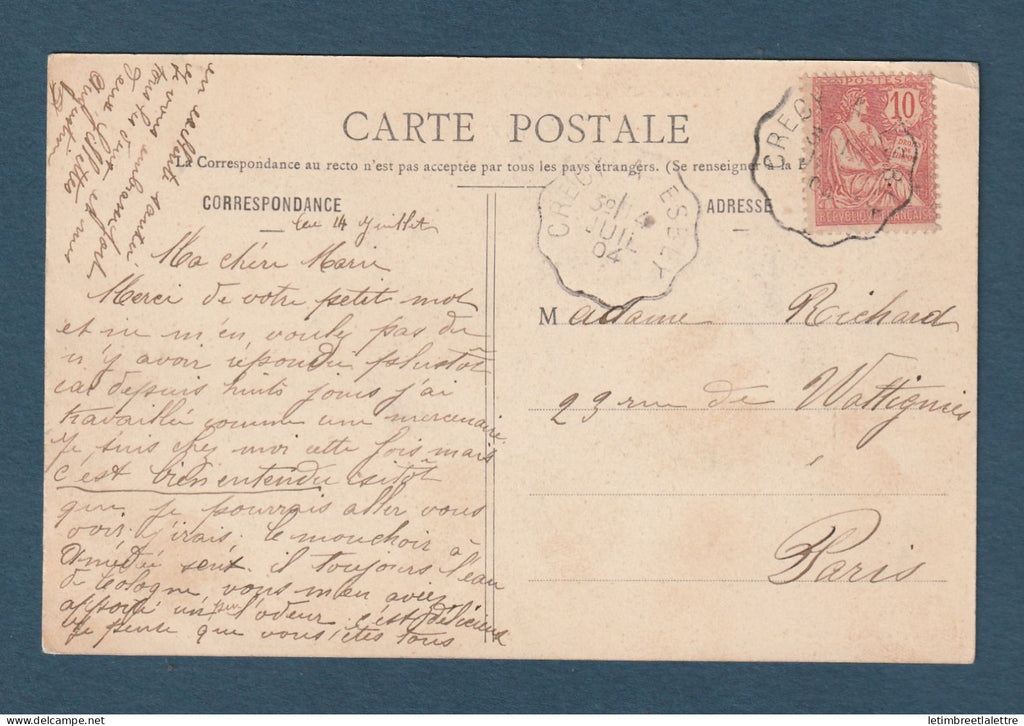 CARTE POSTALE
La Correspondance au recto n'est pas acceptée par tous les pays étrangers. (Se renseigner à la
CORRESPONDANCE
ADRESSE
POSTES
10
RÉPUBLIQUE FRANÇAISE
CRECY A ESBLY
3º 14
JUIL
04
CRECY A
Ce 14 Juillet
Ma chère Marie
Merci de votre petit mot
et ne m'en voulez pas du
n'y avoir répondu plustôt
car depuis huits jours j'ai
travaillée comme une mercenaire.
Je suis chez moi cette fois mais
c'est bien entendu sitôt
que je pourrais aller vous
voir j'irais. le mouchoir à
Amédée sent il toujours l'eau
de Cologne, vous m'en aviez
apporté un peu l'odeur c'est délicieux
Je pense que vous êtes tous
en santé
et vous embrassons fort
tous les
Madame Richard
23 rue de Wattignies
à
Paris
letimbreetlalettre